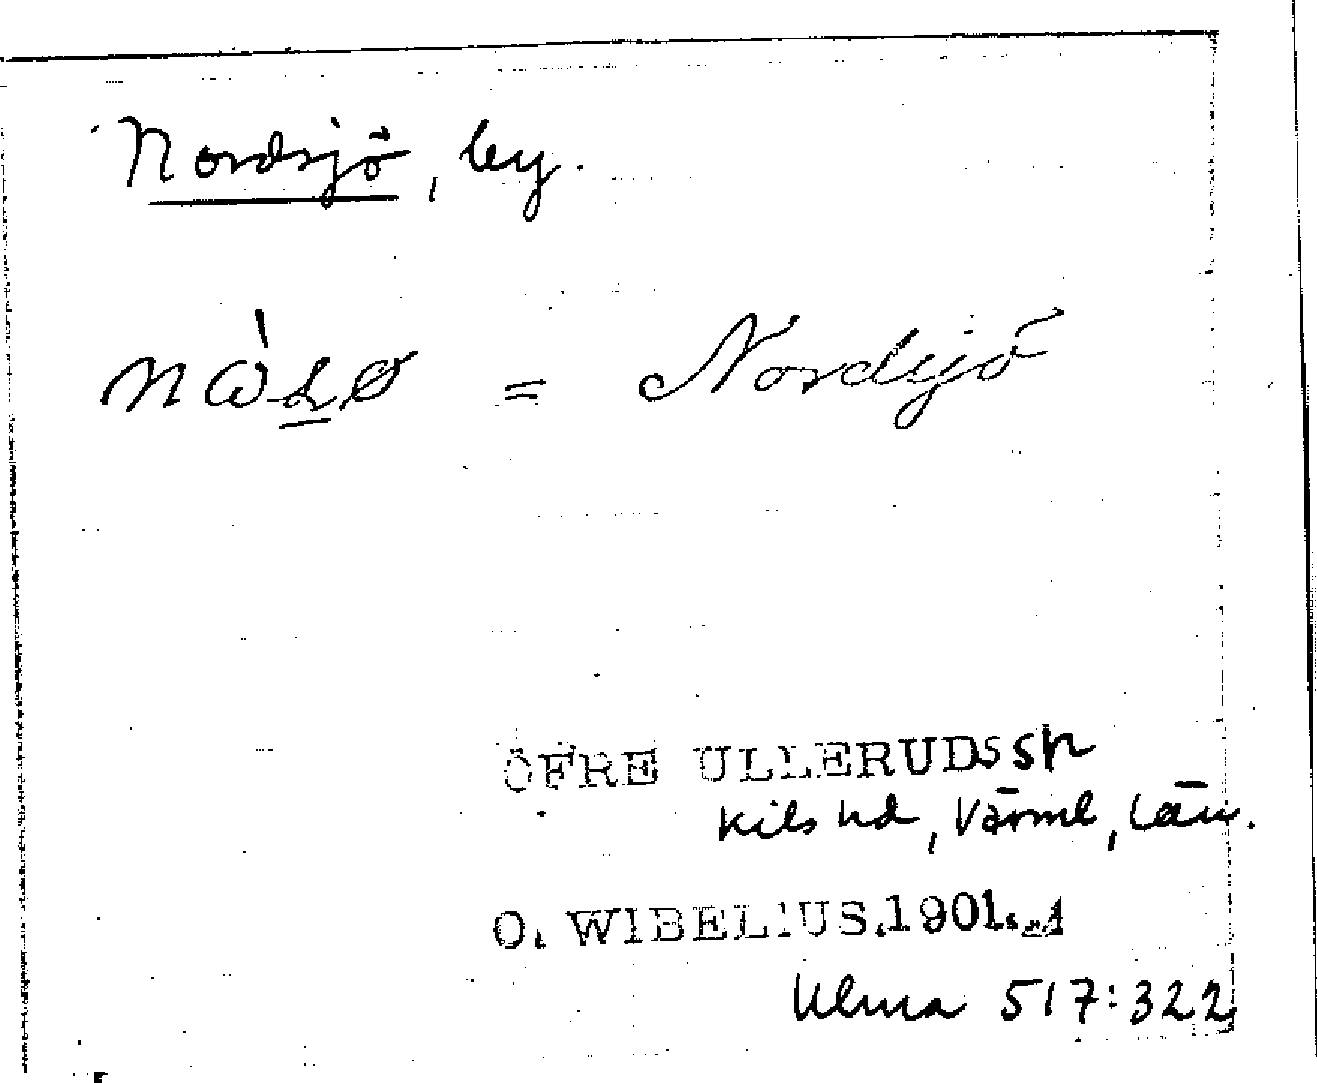 Nordsjö, by.
= Nordsjö
ÖFRE ULLERUDS sn
Kils hd, Värml, län.
O. WIBELIUS. 1901.
Ulma 517:322